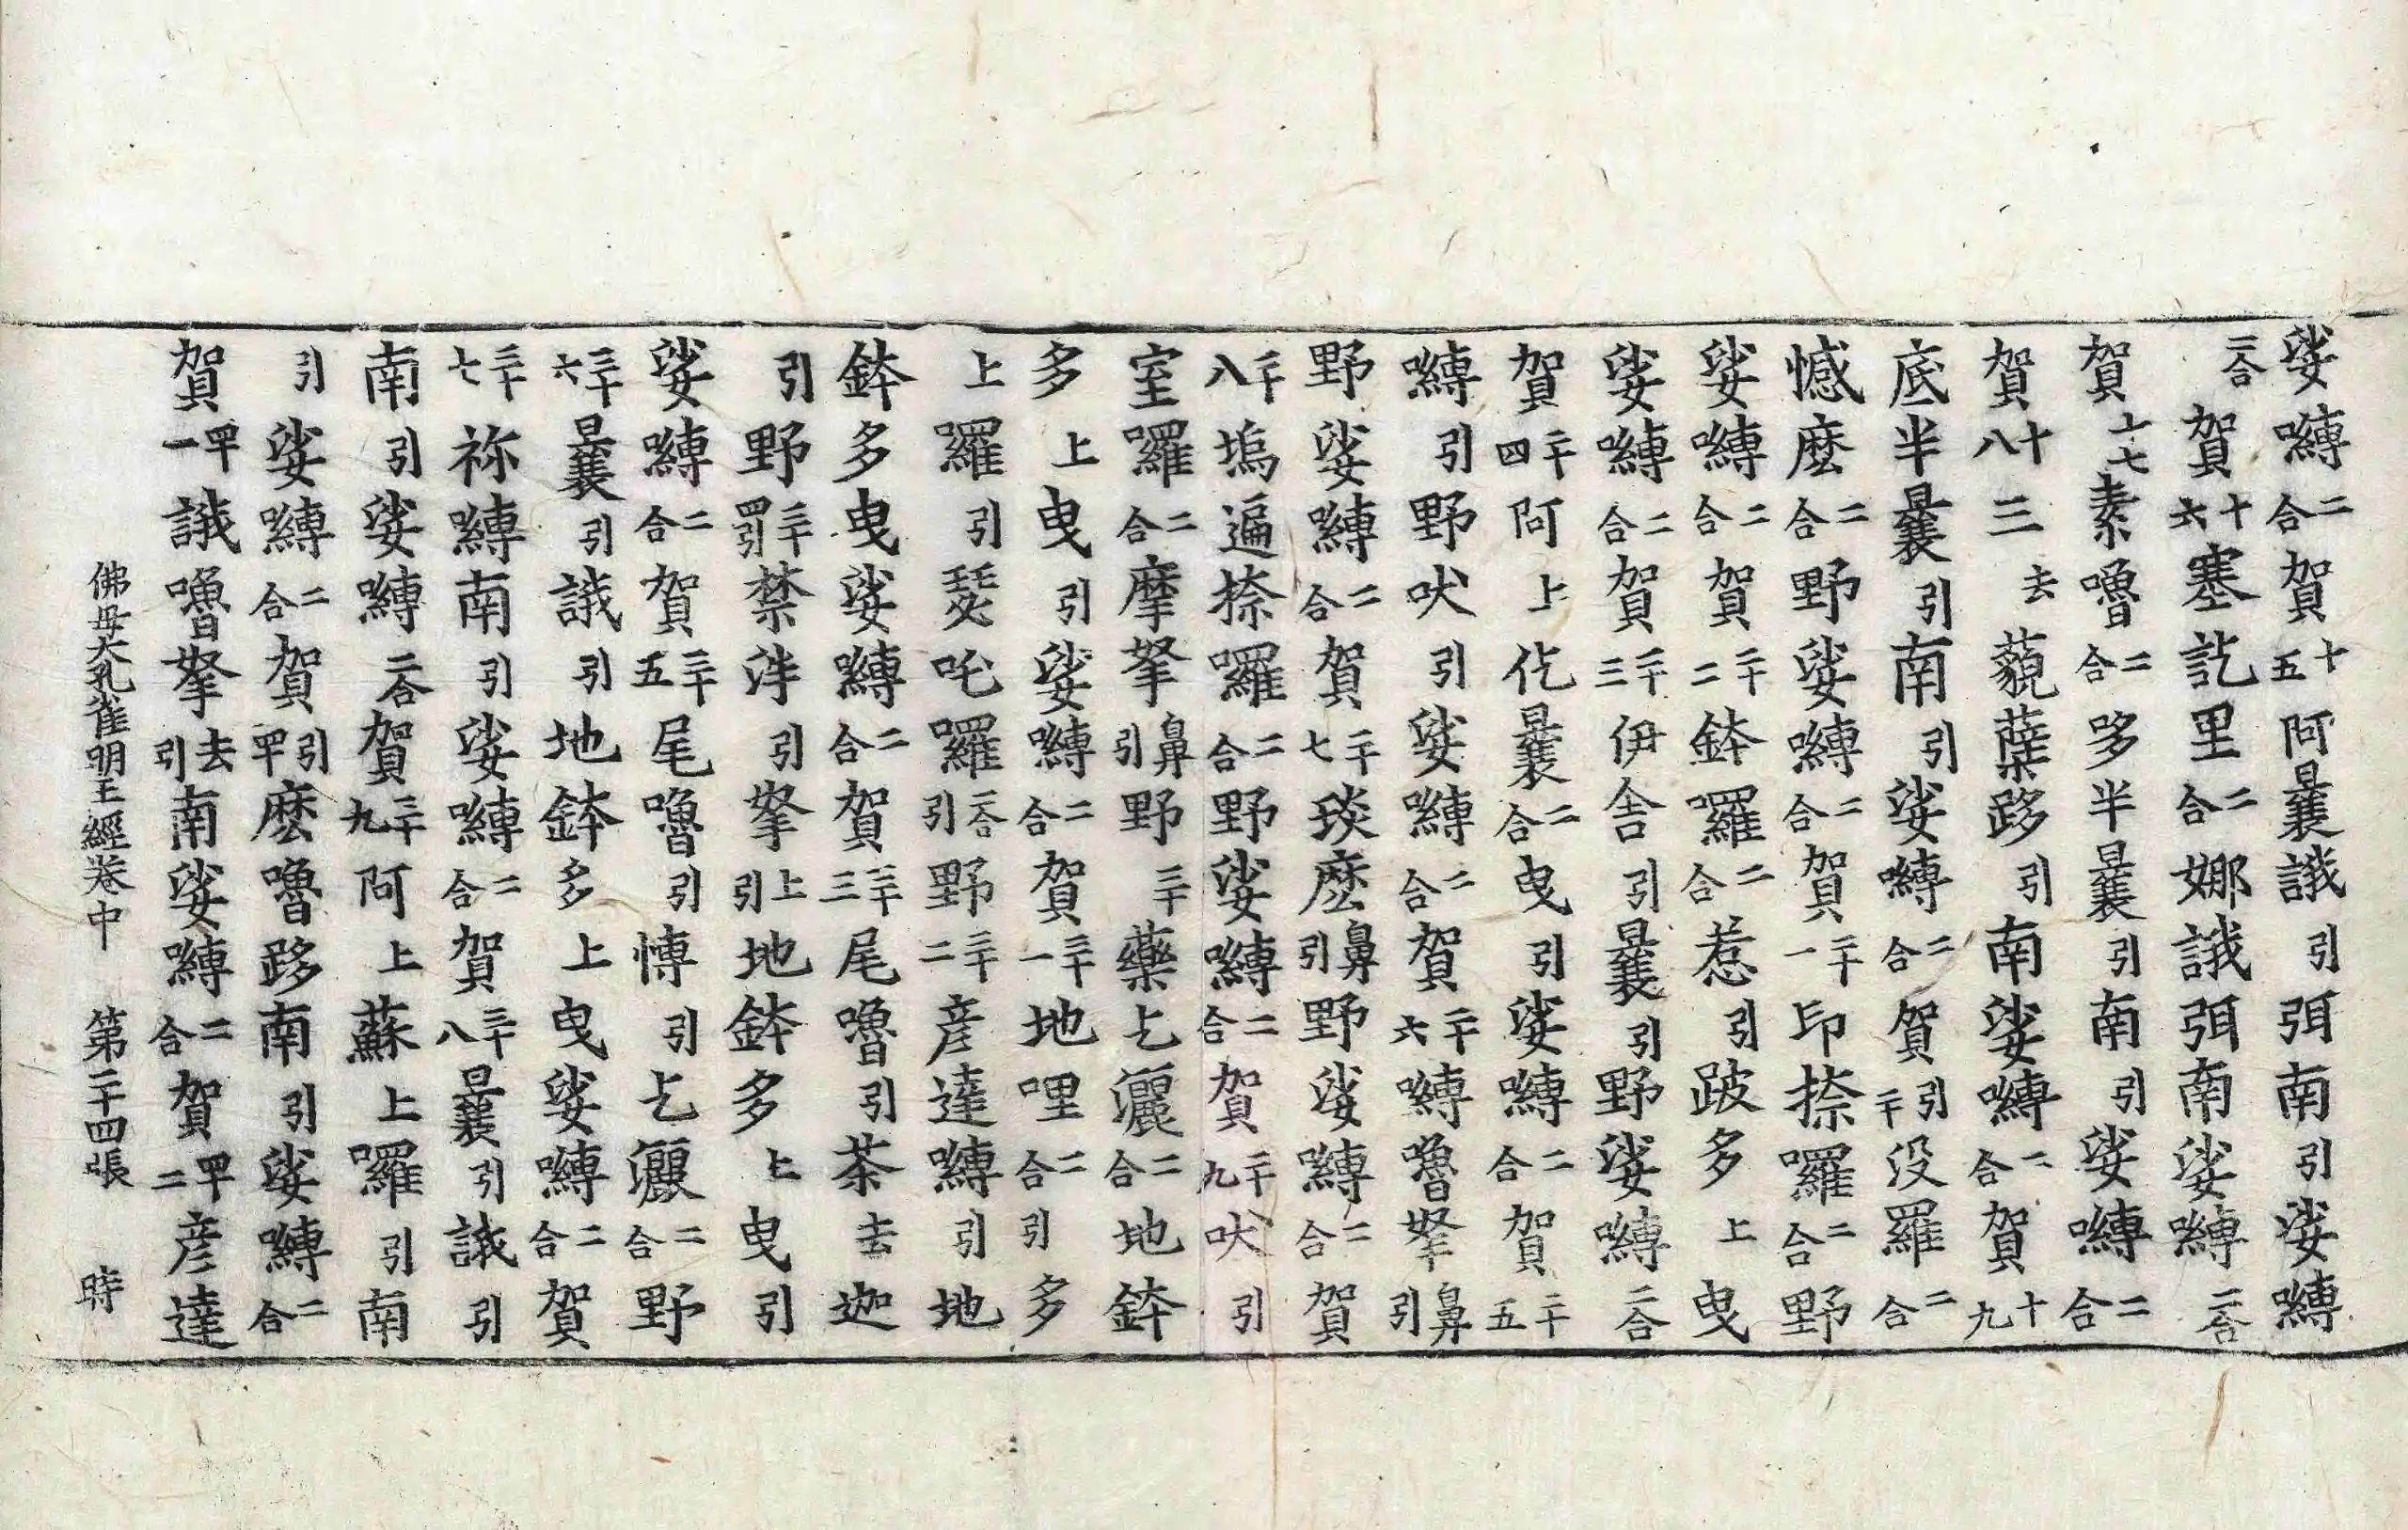 娑嚩二合賀十五阿曩誐引弭南引娑嚩
二合賀十六塞訖里二合娜誐弭南娑嚩二合
賀十七素嚕二合哆半曩引南引娑嚩二合
賀十八三去藐蘖跢引南娑嚩二合賀十九
底半曩引南引娑嚩二合賀引二十没羅二合
憾麼二合野娑嚩二合賀二十一印捺囉二合野
娑嚩二合賀二十二鉢羅二合惹引跛多上曳
娑嚩二合賀二十三伊舍引曩引野娑嚩二合
賀二十四阿上仡曩二合曳引娑嚩二合賀二十五
嚩引野吠引娑嚩二合賀二十六嚩嚕拏鼻引
野娑嚩二合賀二十七琰麼鼻引野娑嚩二合賀
二十八塢遍捺囉二合野娑嚩二合賀二十九吠引
室囉二合摩拏鼻引野三十藥乞灑二合地鉢
多上曳引娑嚩二合賀三十一地哩二合引多
上羅引瑟吒囉二合引野三十二彦達嚩引地
鉢多曳娑嚩二合賀三十三尾嚕引茶去迦
引野三十四引禁泮引拏上引地鉢多上曳引
娑嚩二合賀三十五尾嚕引慱引乞灑二合野
三十六曩引誐引地鉢多上曳娑嚩二合賀
三十七祢嚩南引娑嚩二合賀三十八曩引誐引
南引娑嚩二合賀三十九阿上蘇上囉引南
引娑嚩二合賀引四十麼嚕跢南引娑嚩二合
賀四十一誐嚕拏去引南娑嚩二合賀四十二彦達
佛母大孔雀明王經卷中 第二十四張 時